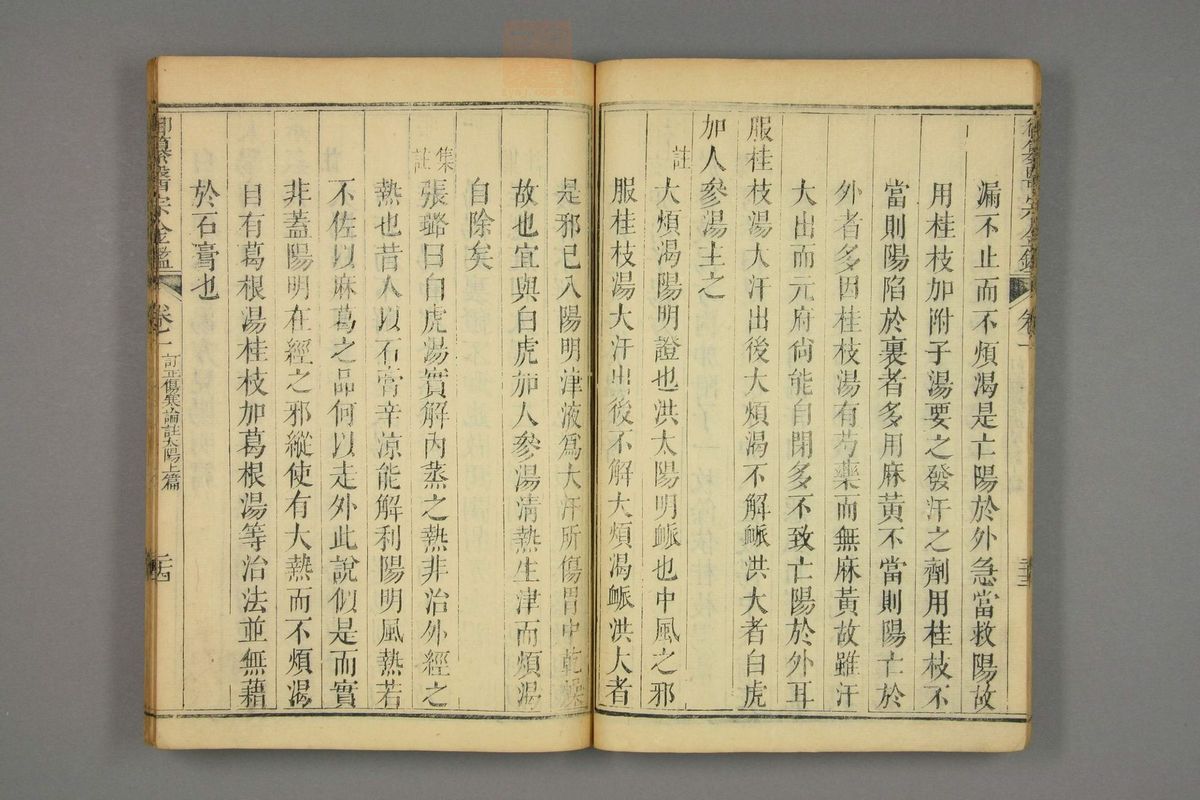 漏不止而不煩渴是亡陽於外急當救陽故
用桂枝加附子湯要之發汗之劑用桂枝不
當則陽陷於裏者多用麻黃不當則陽亡於
外者多因桂枝湯有芍藥而無麻黃故雖汗
大出而元府尙能自閉多不致亡陽於外耳
服桂枝湯大汗出後大煩渴不解脈洪大者白虎
加人參湯主之
註
大煩渴陽明證也洪大陽明脈也中風之邪
服桂枝湯大汗出後不解大煩渴脈洪大者
是邪已入陽明津液爲大汗所傷胃中乾燥
故也宜與白虎加人參湯淸熱生津而煩渴
自除矣
集註
張璐曰白虎湯實解內蒸之熱非治外經之
熱也昔人以石膏辛涼能解利陽明風熱若
不佐以麻葛之品何以走外此說似是而實
非蓋陽明在經之邪縱使有大熱而不煩渴
自有葛根湯桂枝加葛根湯等治法並無藉
於石膏也
御纂醫宗金鑑
卷一
訂正傷寒論註太陽上篇